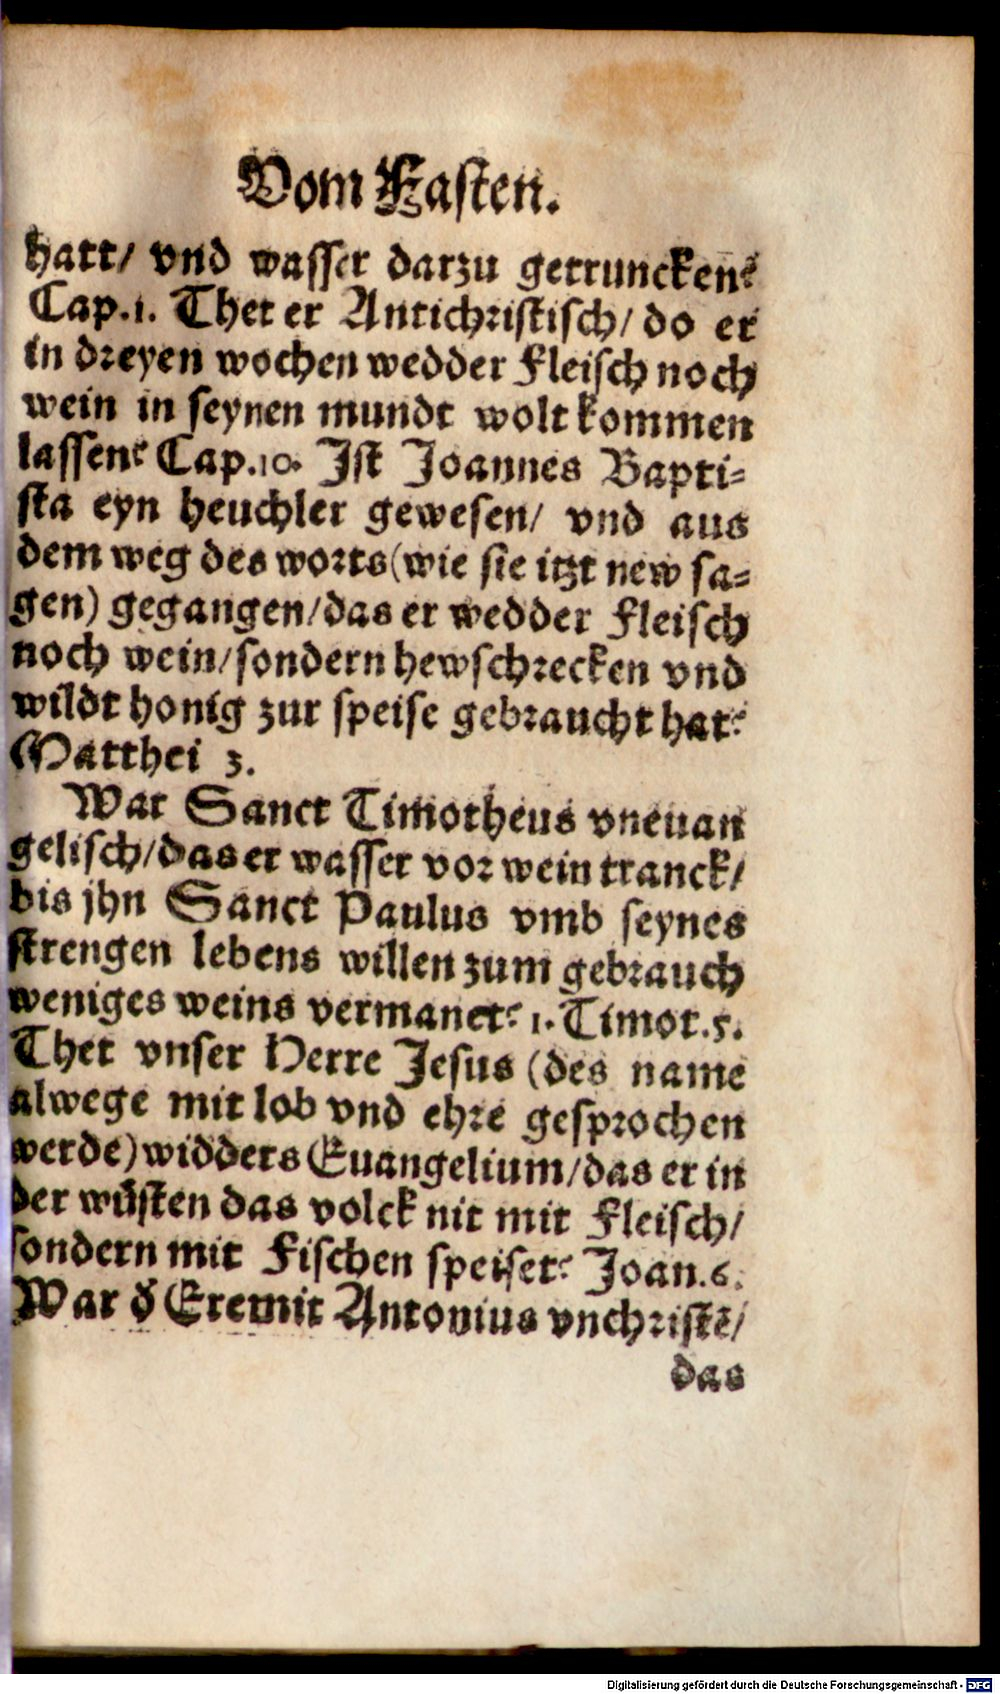 Vom Fasten.
hatt/ vnd wasser darzu getruncken?
Cap.1. Thet er Antichristisch/ do er
in dreyen wochen wedder Fleisch noch
wein in seynen mundt wolt kommen
lassen? Cap.10. Ist Joannes Bapti-
sta eyn heuchler gewesen/ vnd aus
dem weg des worts (wie sie itzt new sa-
gen) gegangen/ das er wedder Fleisch
noch wein/ sondern hewschrecken vnd
wildt honig zur speise gebraucht hat?
Matthei 3.
War Sanct Timotheus vneuan
gelisch/ das er wasser vor wein tranck/
bis jhn Sanct Paulus vmb seynes
strengen lebens willen zum gebrauch
weniges weins vermanet? 1. Timot.5.
Thet vnser Herre Jesus (des name
alwege mit lob vnd ehre gesprochen
werde) widders Euangelium/ das er in
der wüsten das volck nit mit Fleisch/
sondern mit Fischen speiset? Joan.6.
War d̕ Eremit Antonius vnchristē/
das
Digitalisierung gefördert durch die Deutsche Forschungsgemeinschaft - DFG